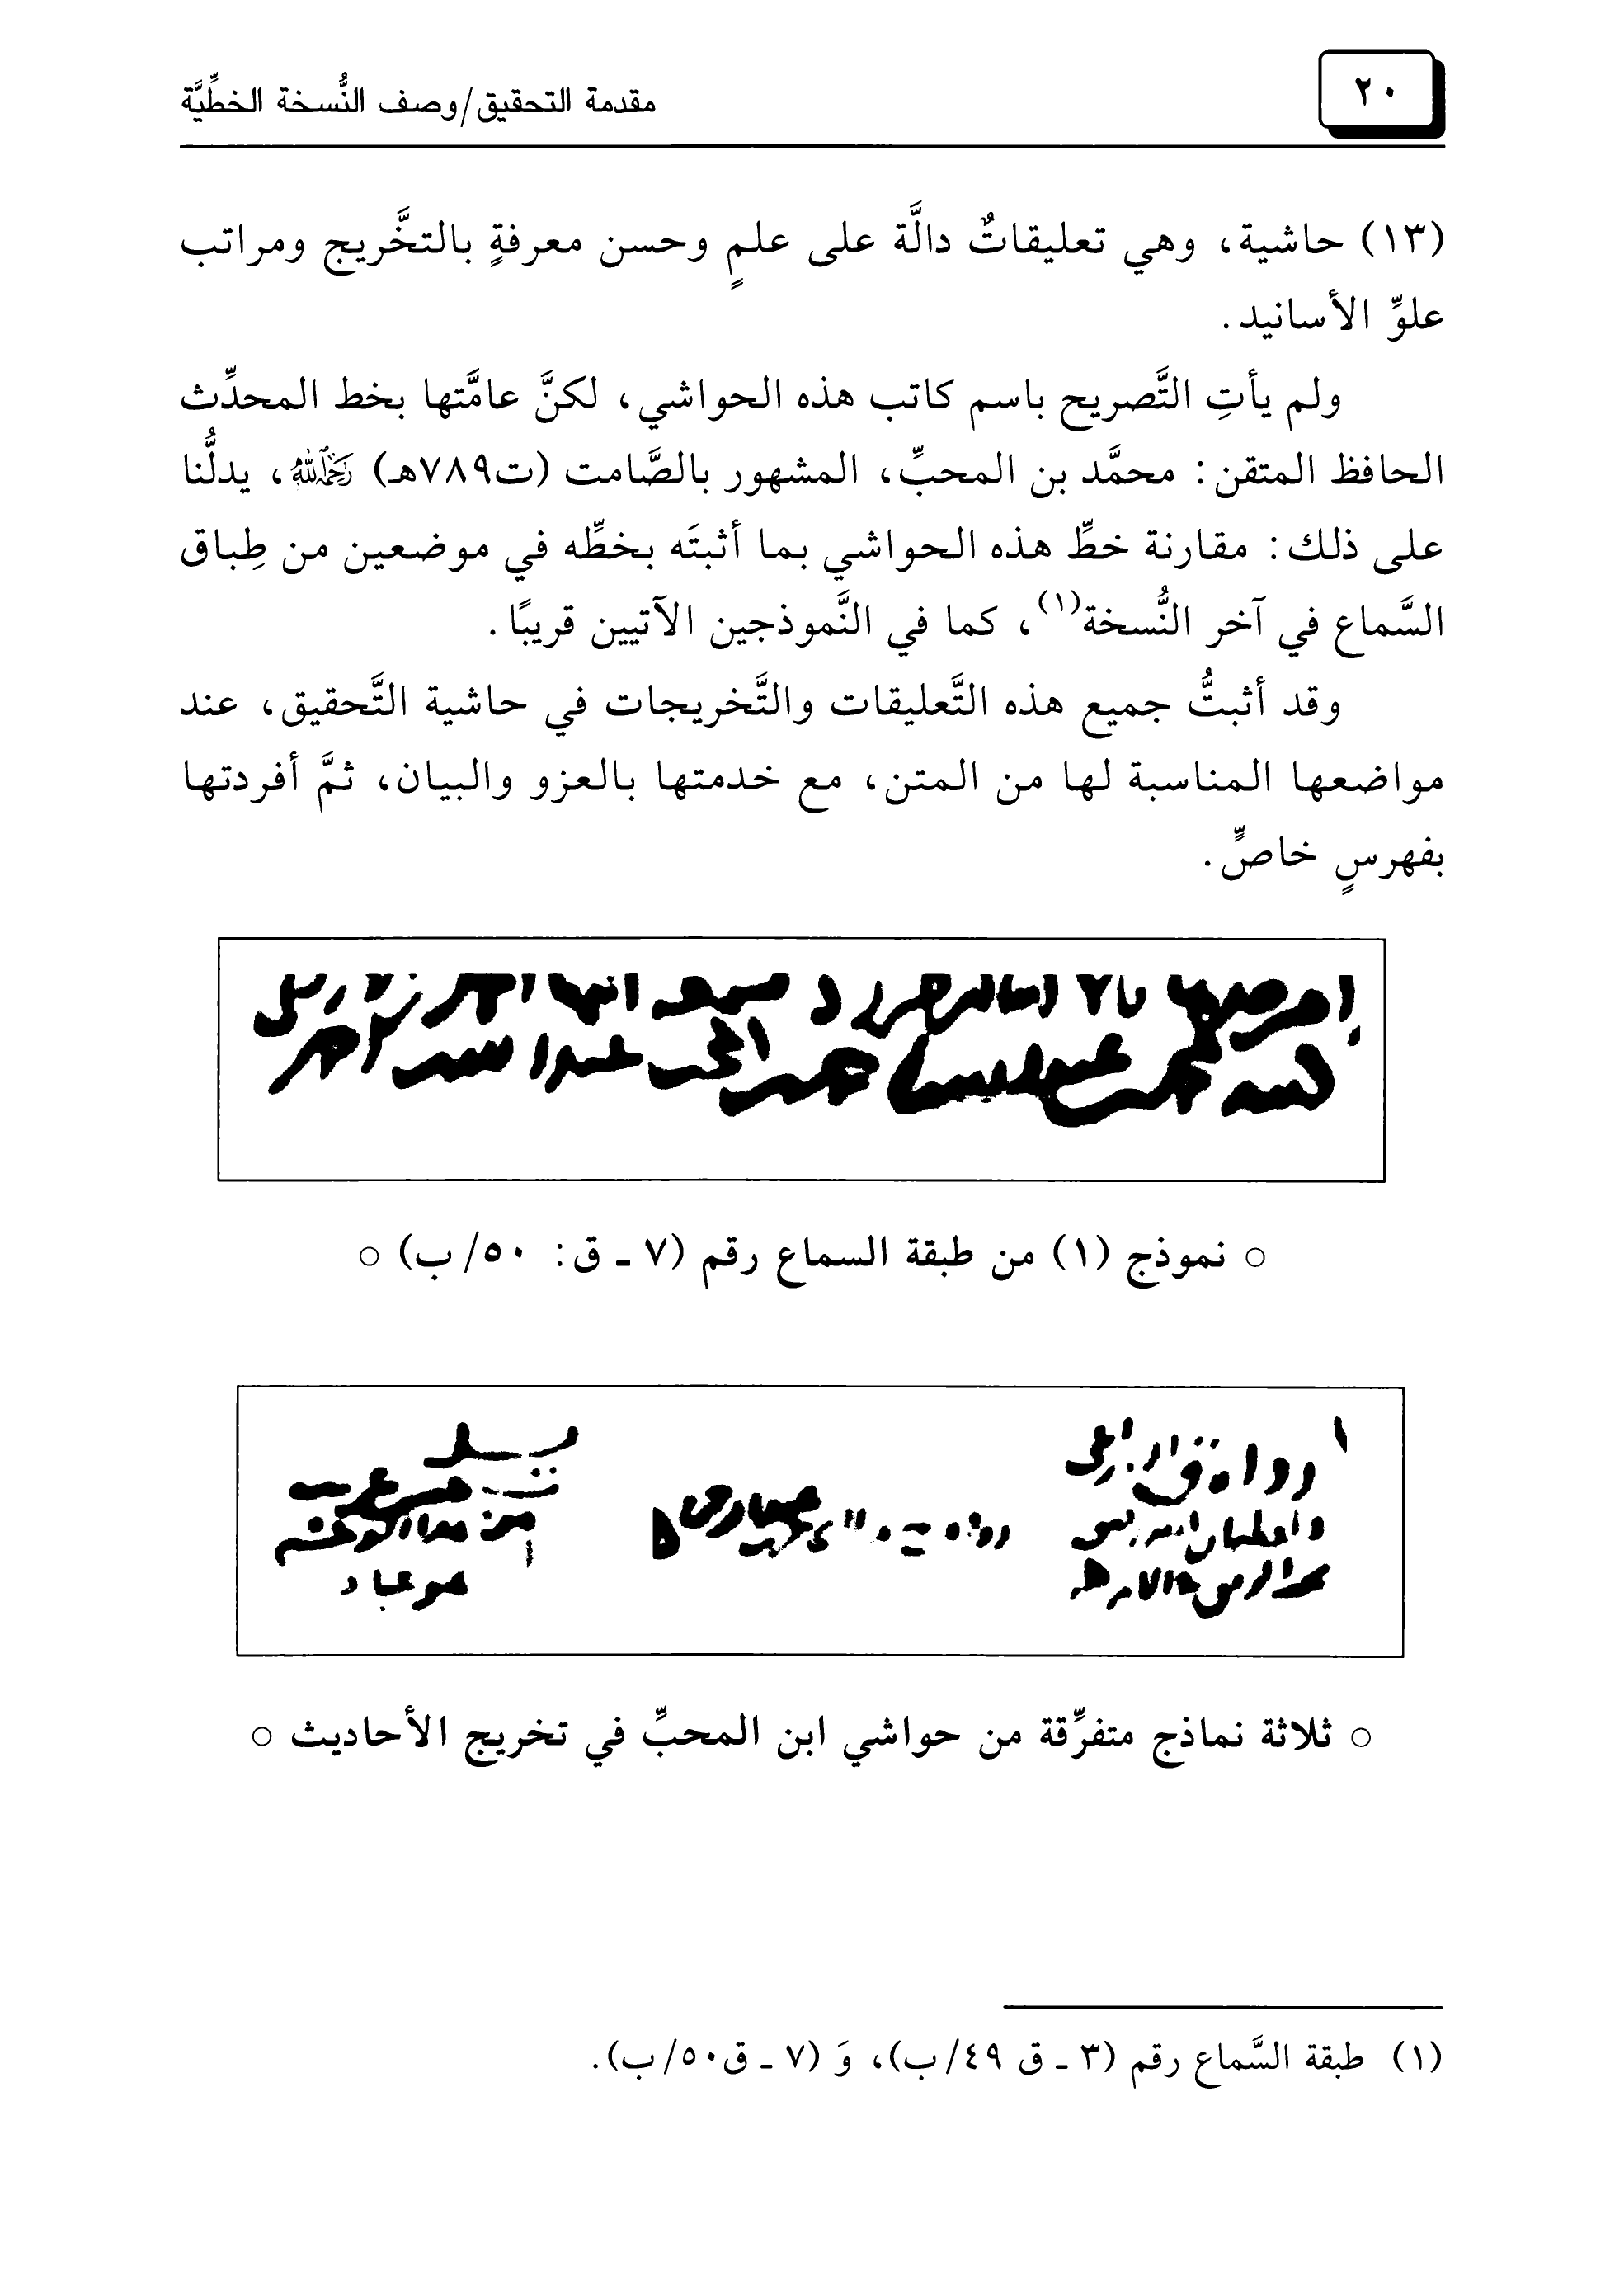 ٢٠
مقدمة التحقيق/وصف النُّسخة الخطِّيَّة
(١٣) حاشية، وهي تعليقاتٌ دالَّة على علمٍ وحسن معرفةٍ بالتخَّريج ومراتب
علوِّ الأسانيد.
ولم يأتِ التَّصريح باسم كاتب هذه الحواشي، لكنَّ عامَّتها بخط المحدِّث
الحافظ المتقن: محمَّد بن المحبِّ، المشهور بالصَّامت (ت٧٨٩هـ) رَحِمَهُ ٱللَّهُ، يدلُّنا
على ذلك: مقارنة خطِّ هذه الحواشي بما أثبتَه بخطِّه في موضعين من طِباق
السَّماع في آخر النُّسخة(١)، كما في النَّموذجين الآتيين قريبًا.
وقد أثبتُّ جميع هذه التَّعليقات والتَّخريجات في حاشية التَّحقيق، عند
مواضعها المناسبة لها من المتن، مع خدمتها بالعزو والبيان، ثمَّ أفردتها
بفهرسٍ خاصٍّ.
○ نموذج (١) من طبقة السماع رقم (٧ ـ ق: ٥٠/ ب) ○
○ ثلاثة نماذج متفرِّقة من حواشي ابن المحبِّ في تخريج الأحاديث ○
(١) طبقة السَّماع رقم (٣ ـ ق ٤٩/ ب)، وَ (٧ ـ ق٥٠/ ب).